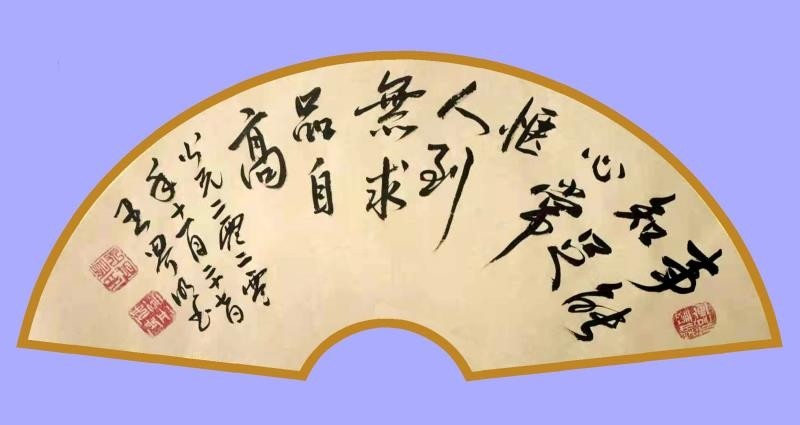 事能
知足
心常
惬
人到
無求
品自
高
公元二零二零
年十月二十
王